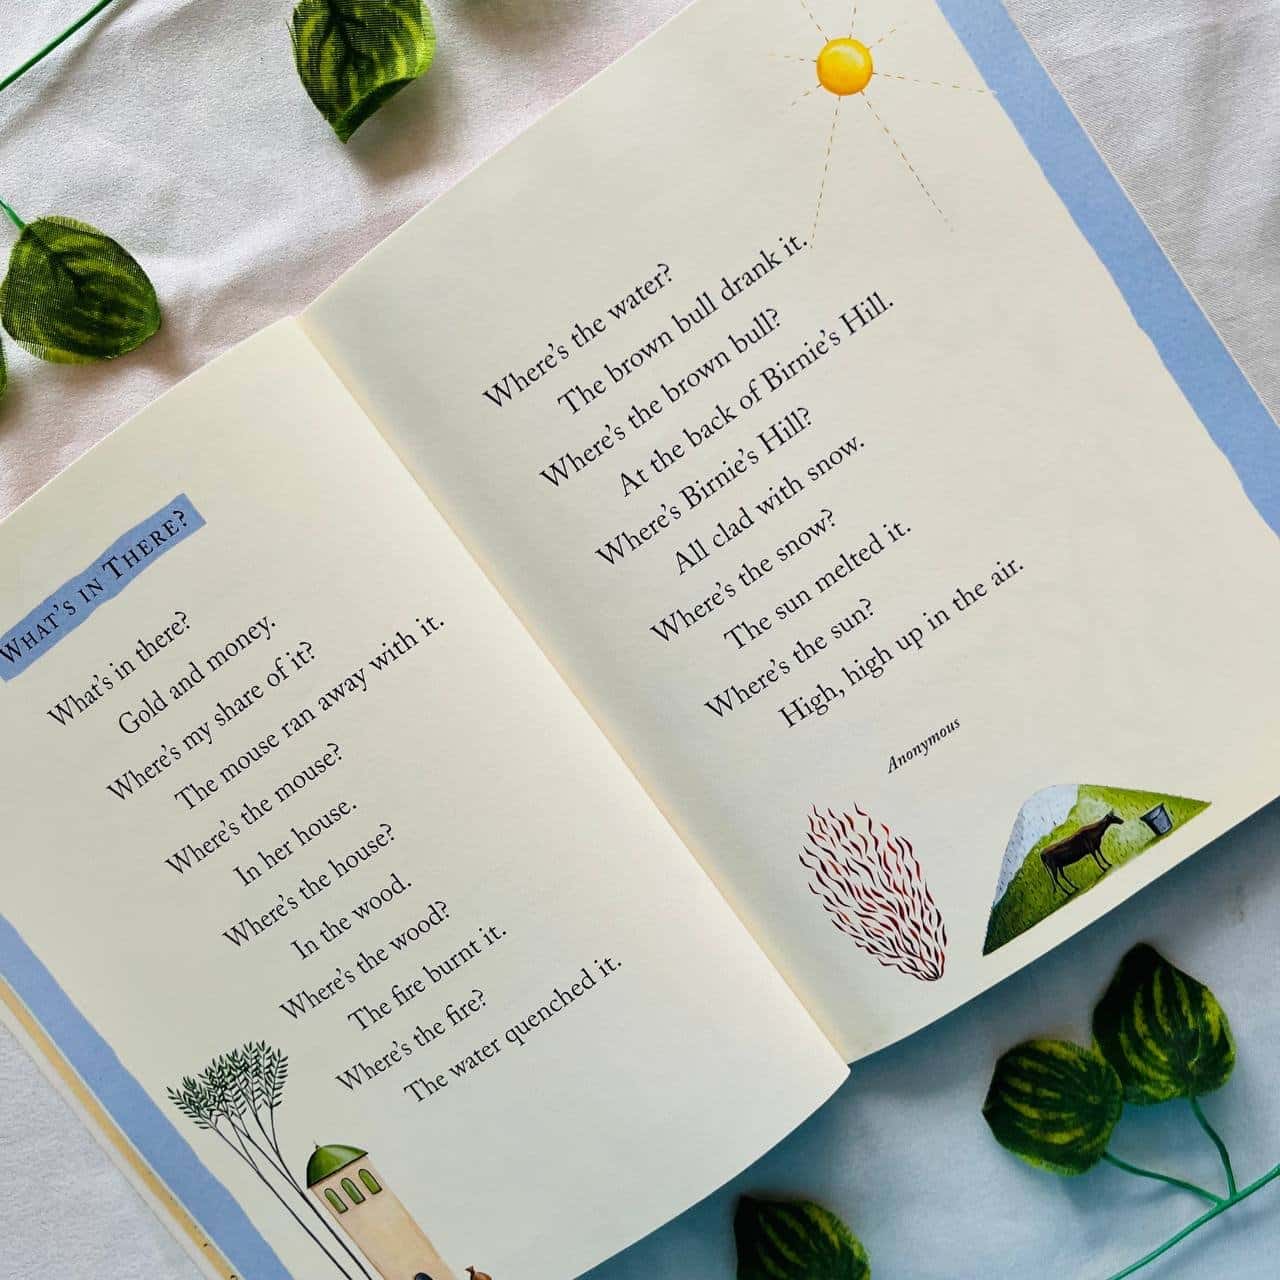 WHAT'S IN THERE?
What's in there?
Gold and money.
Where's my share of it?
The mouse ran away with it.
Where's the mouse?
In her house.
Where's the house?
In the wood.
Where's the wood?
The fire burnt it.
Where's the fire?
The water quenched it.
Where's the water?
The brown bull drank it.
Where's the brown bull?
At the back of Birnie's Hill.
Where's Birnie's Hill?
All clad with snow.
Where's the snow?
The sun melted it.
Where's the sun?
High, high up in the air.
Anonymous